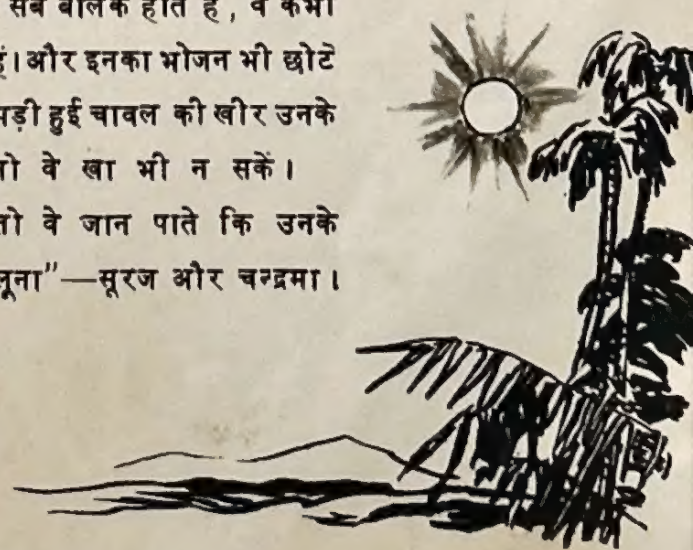 सब बालक होते हैं, वे कभी
हैं। और इनका भोजन भी छोटे
पड़ी हुई चावल की खीर उनके
तो वे खा भी न सकें।
तो वे जान पाते कि उनके
लूना”—सूरज और चन्द्रमा।